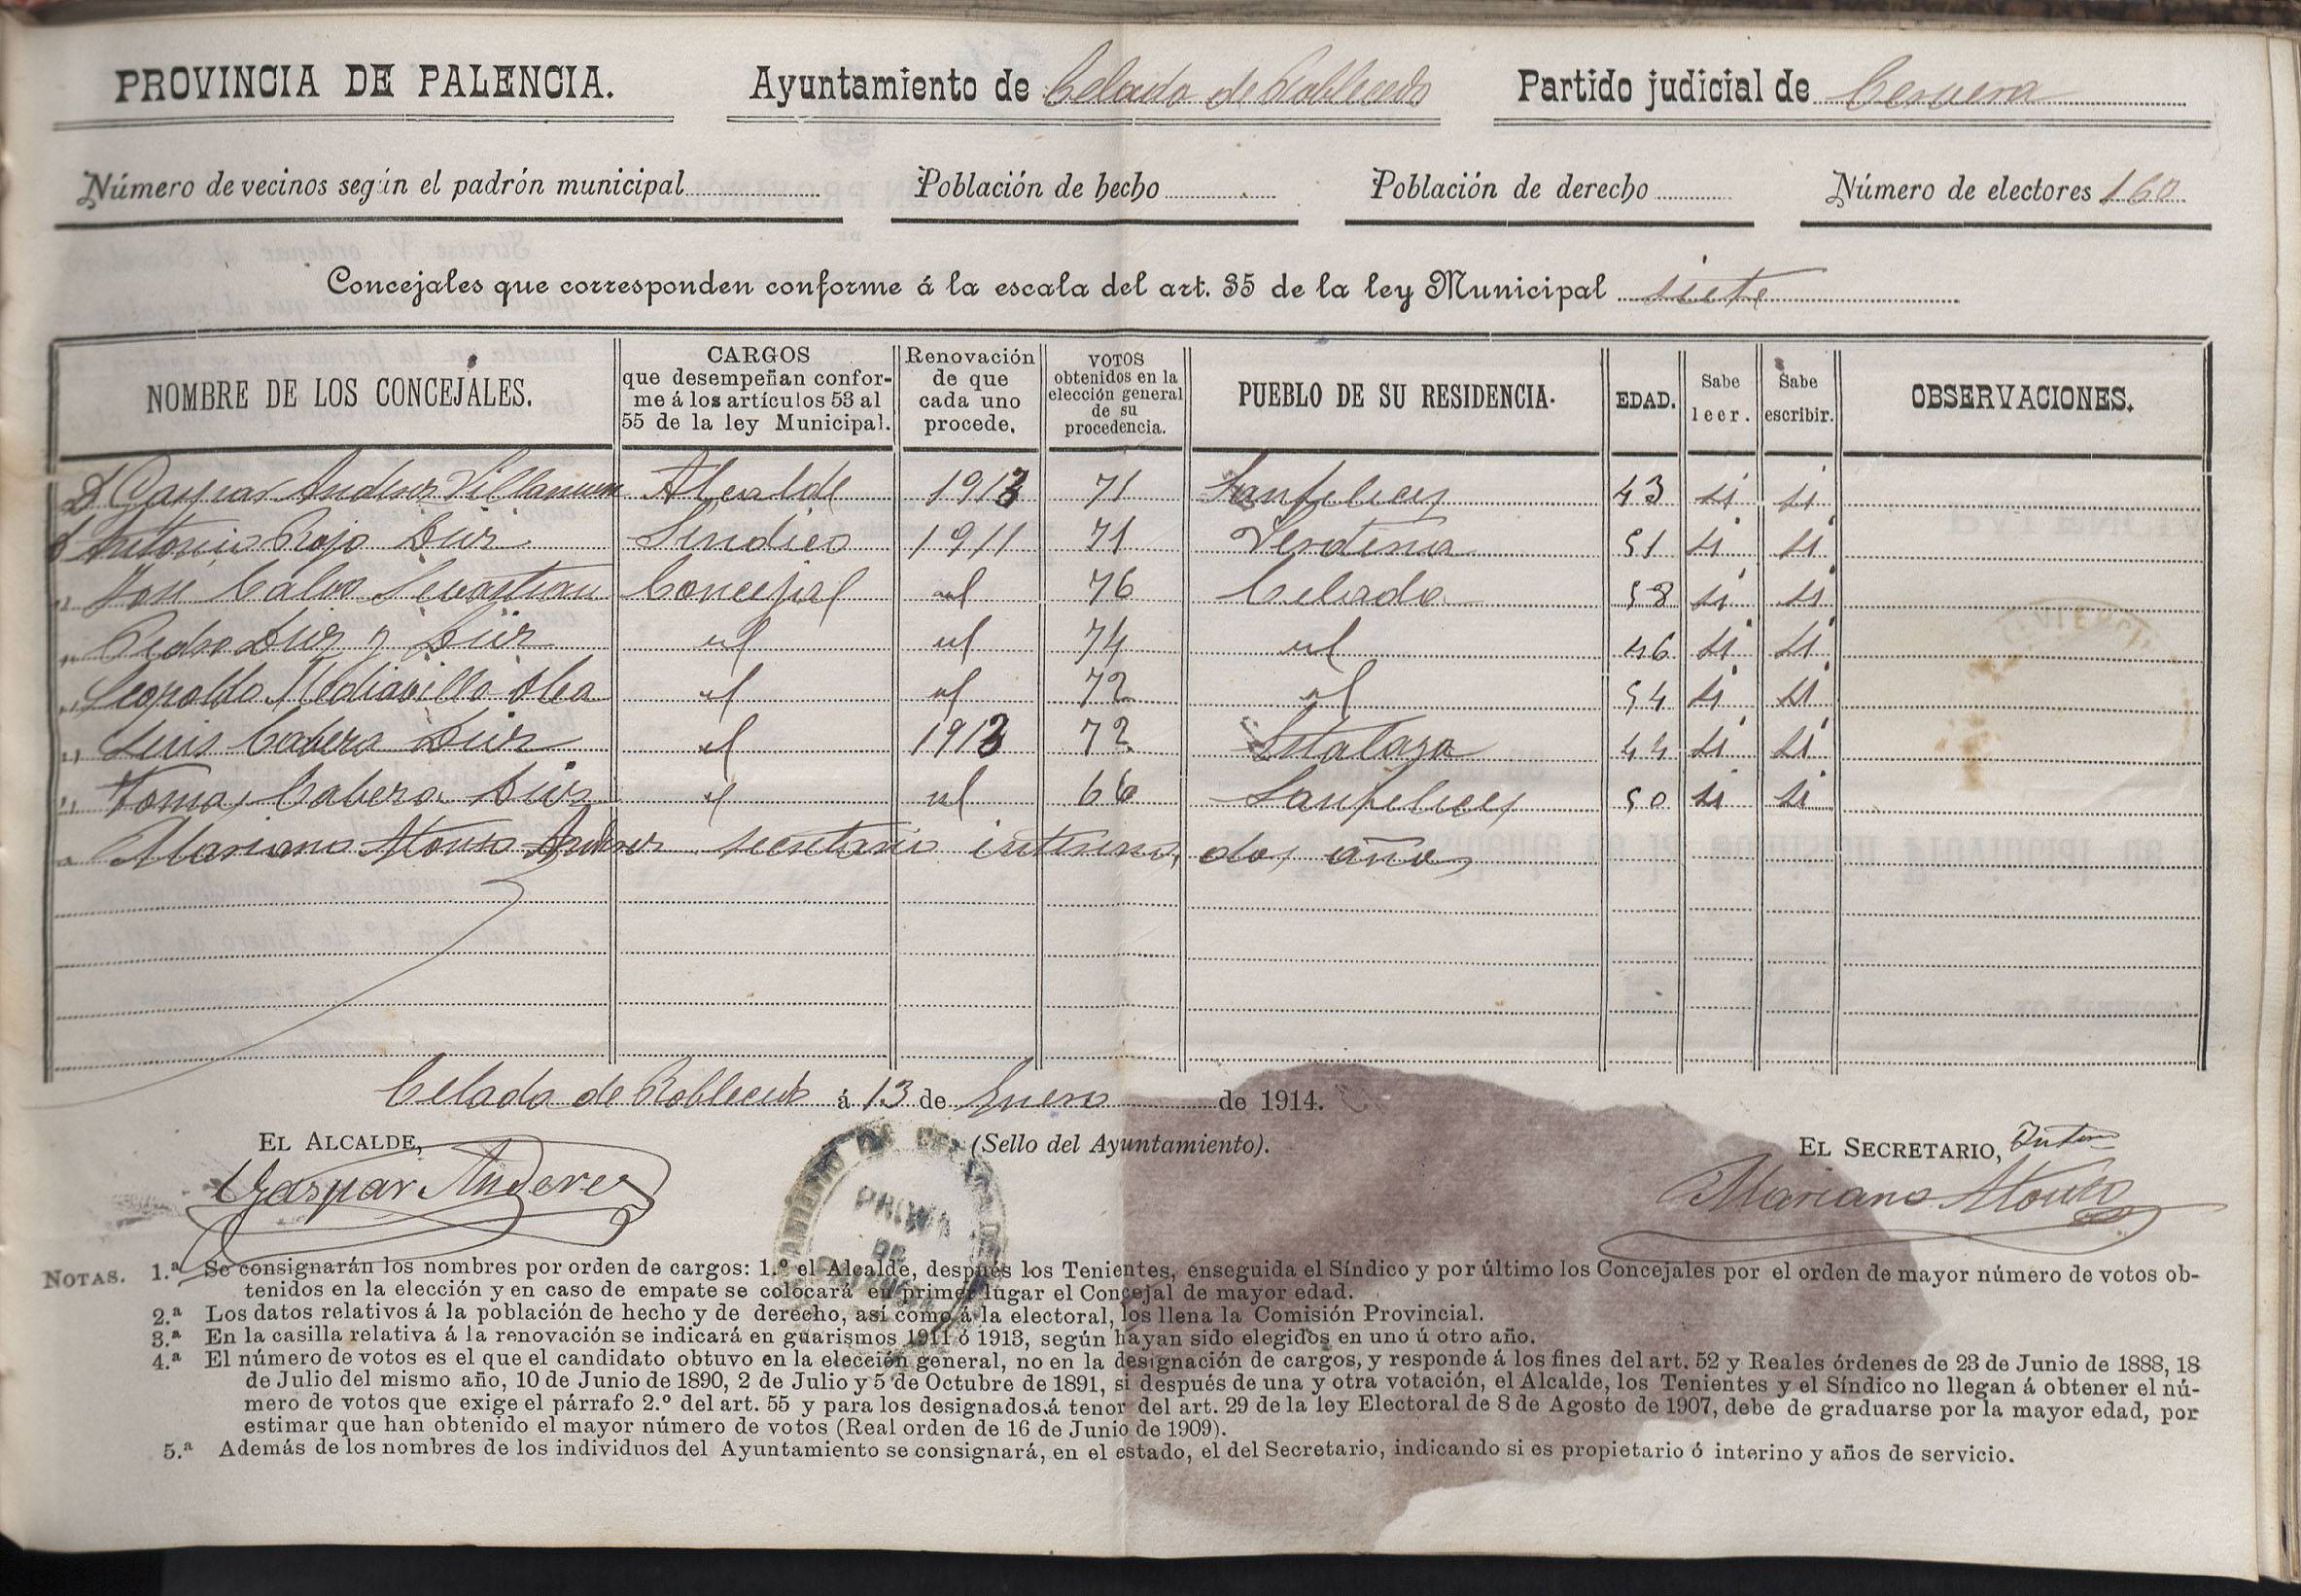 PROVINCIA DE PALENCIA. Ayuntamiento de Celada de Roblecedo Partido judicial de Cervera
Número de vecinos según el padrón municipal Población de hecho Población de derecho Número de electores 160
Concejales que corresponden conforme á la escala del art. 35 de la ley Municipal siete
NOMBRE DE LOS CONCEJALES. CARGOS que desempeñan confor- me á los artículos 53 al 55 de la ley Municipal. Renovación de que cada uno procede. VOTOS obtenidos en la elección general de su procedencia. PUEBLO DE SU RESIDENCIA. EDAD. Sabe leer. Sabe escribir. OBSERVACIONES.
D Gaspar Anderes Villanueva Alcalde 1913 71 Sanfelices 43 si si
D Antonio Rojo Diez Sindico 1911 71 Verdeña 51 si si
„ José Calvo Sevastian Concejal id 76 Celada 58 si si
„ Pedro Diez y Diez id id 74 id 46 si si
„ Leopoldo Mediavilla id id 72 id 54 si si
„ Luis Cabera Diez id 1913 72 Estalaya 44 si si
„ Tomas Cabera Diez id id 66 Sanfelices 50 si si
„ Mariano Alonso Anderes secretario interino, dos años
Celada de Roblecedo á 13 de Enero de 1914.
EL ALCALDE, (Sello del Ayuntamiento). EL SECRETARIO, Interino
Gaspar Anderes Mariano Alonso
NOTAS. 1.ª Se consignarán los nombres por orden de cargos: 1.º el Alcalde, después los Tenientes, enseguida el Síndico y por último los Concejales por el orden de mayor número de votos ob-
tenidos en la elección y en caso de empate se colocará en primer lugar el Concejal de mayor edad.
2.ª Los datos relativos á la población de hecho y de derecho, así como á la electoral, los llena la Comisión Provincial.
3.ª En la casilla relativa á la renovación se indicará en guarismos 1911 ó 1913, según hayan sido elegidos en uno ú otro año.
4.ª El número de votos es el que el candidato obtuvo en la elección general, no en la designación de cargos, y responde á los fines del art. 52 y Reales órdenes de 23 de Junio de 1888, 18
de Julio del mismo año, 10 de Junio de 1890, 2 de Julio y 5 de Octubre de 1891, si después de una y otra votación, el Alcalde, los Tenientes y el Síndico no llegan á obtener el nú-
mero de votos que exige el párrafo 2.º del art. 55 y para los designados á tenor del art. 29 de la ley Electoral de 8 de Agosto de 1907, debe de graduarse por la mayor edad, por
estimar que han obtenido el mayor número de votos (Real orden de 16 de Junio de 1909).
5.ª Además de los nombres de los individuos del Ayuntamiento se consignará, en el estado, el del Secretario, indicando si es propietario ó interino y años de servicio.